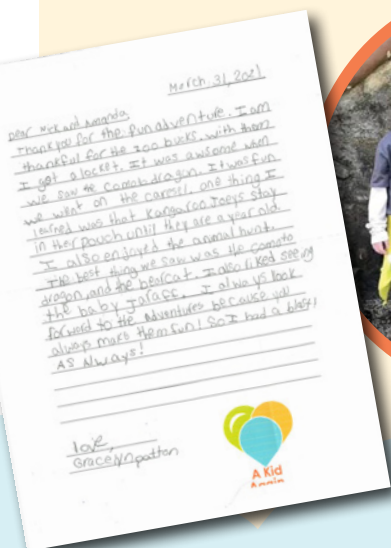 March 31, 2021
Dear Nick and Amanda,
Thankyou for the fun adventure. I am
thankful for the zoo bucks. with them
I got a locket. It was awsome when
we saw the Camoto dragon. It was fun
we went on the carosel, one thing I
learned was that Kangaroo Joeys stay
in ther pouch until they are a year old.
I also enjoyed the anmal hunt.
The best thing we saw was the comoto
dragon, and the bearcat. I also liked seeing
the baby jaraff. I always look
forword to the Adventures because you
always make them fun! So I had a blast!
AS Always!
love,
Gracelyn patton
A Kid
Again